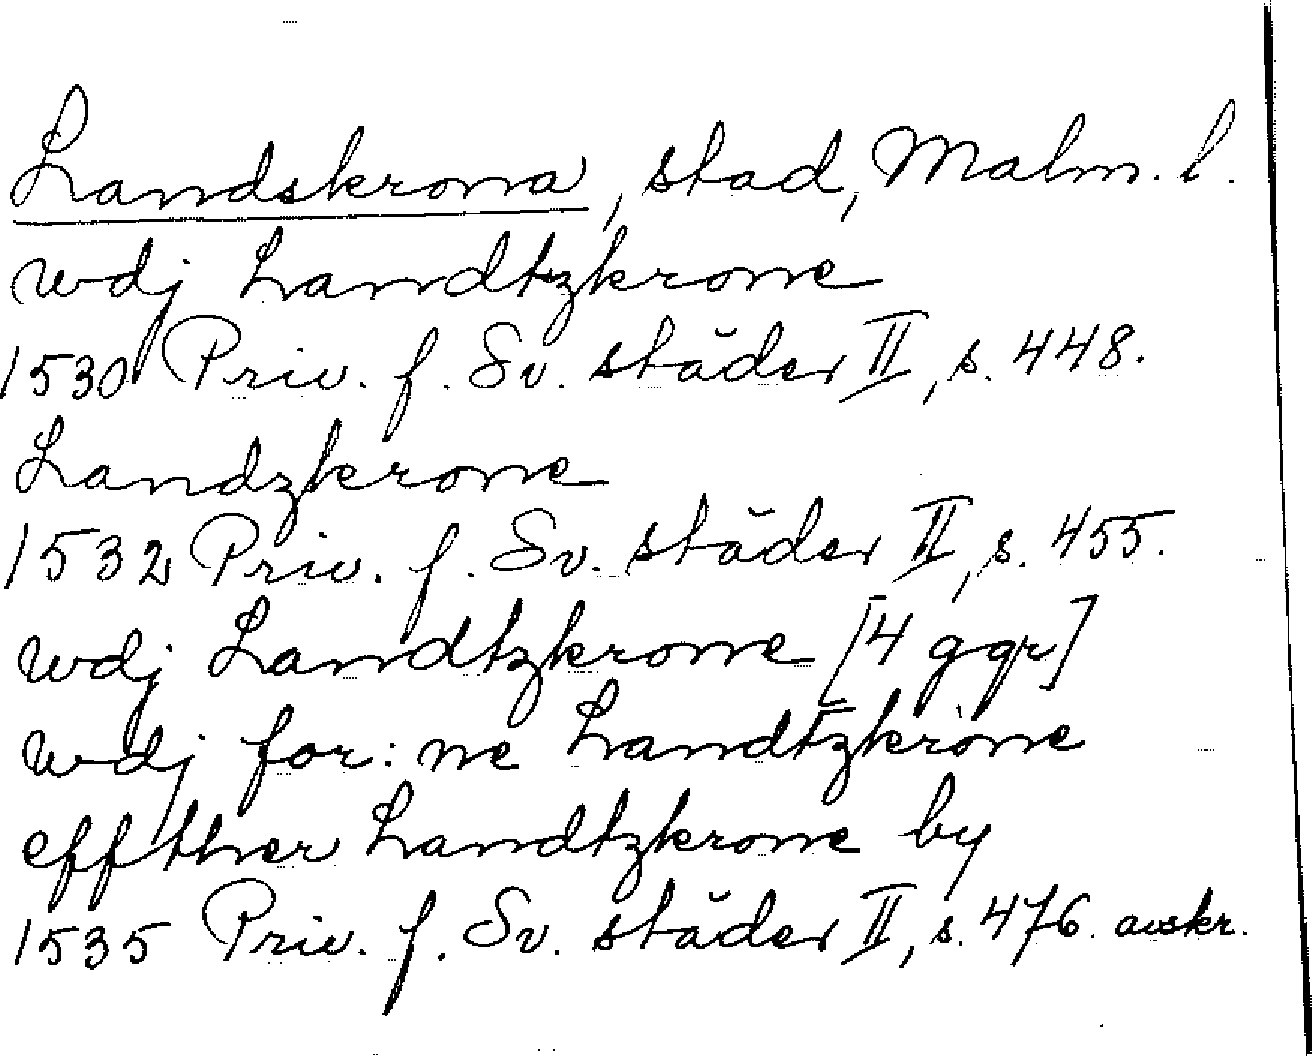 Landskrona, stad, Malm. l.
wdj Landtzkrone
1530 Priv. f. Sv. städer II, s. 448.
Landzkrone
1532 Priv. f. Sv. städer II, s. 455.
wdj Landtzkrone [4 ggr]
wdj for:ne Landtzkrone
effther Landtzkrone by
1535 Priv. f. Sv. städer II, s. 476. avskr.